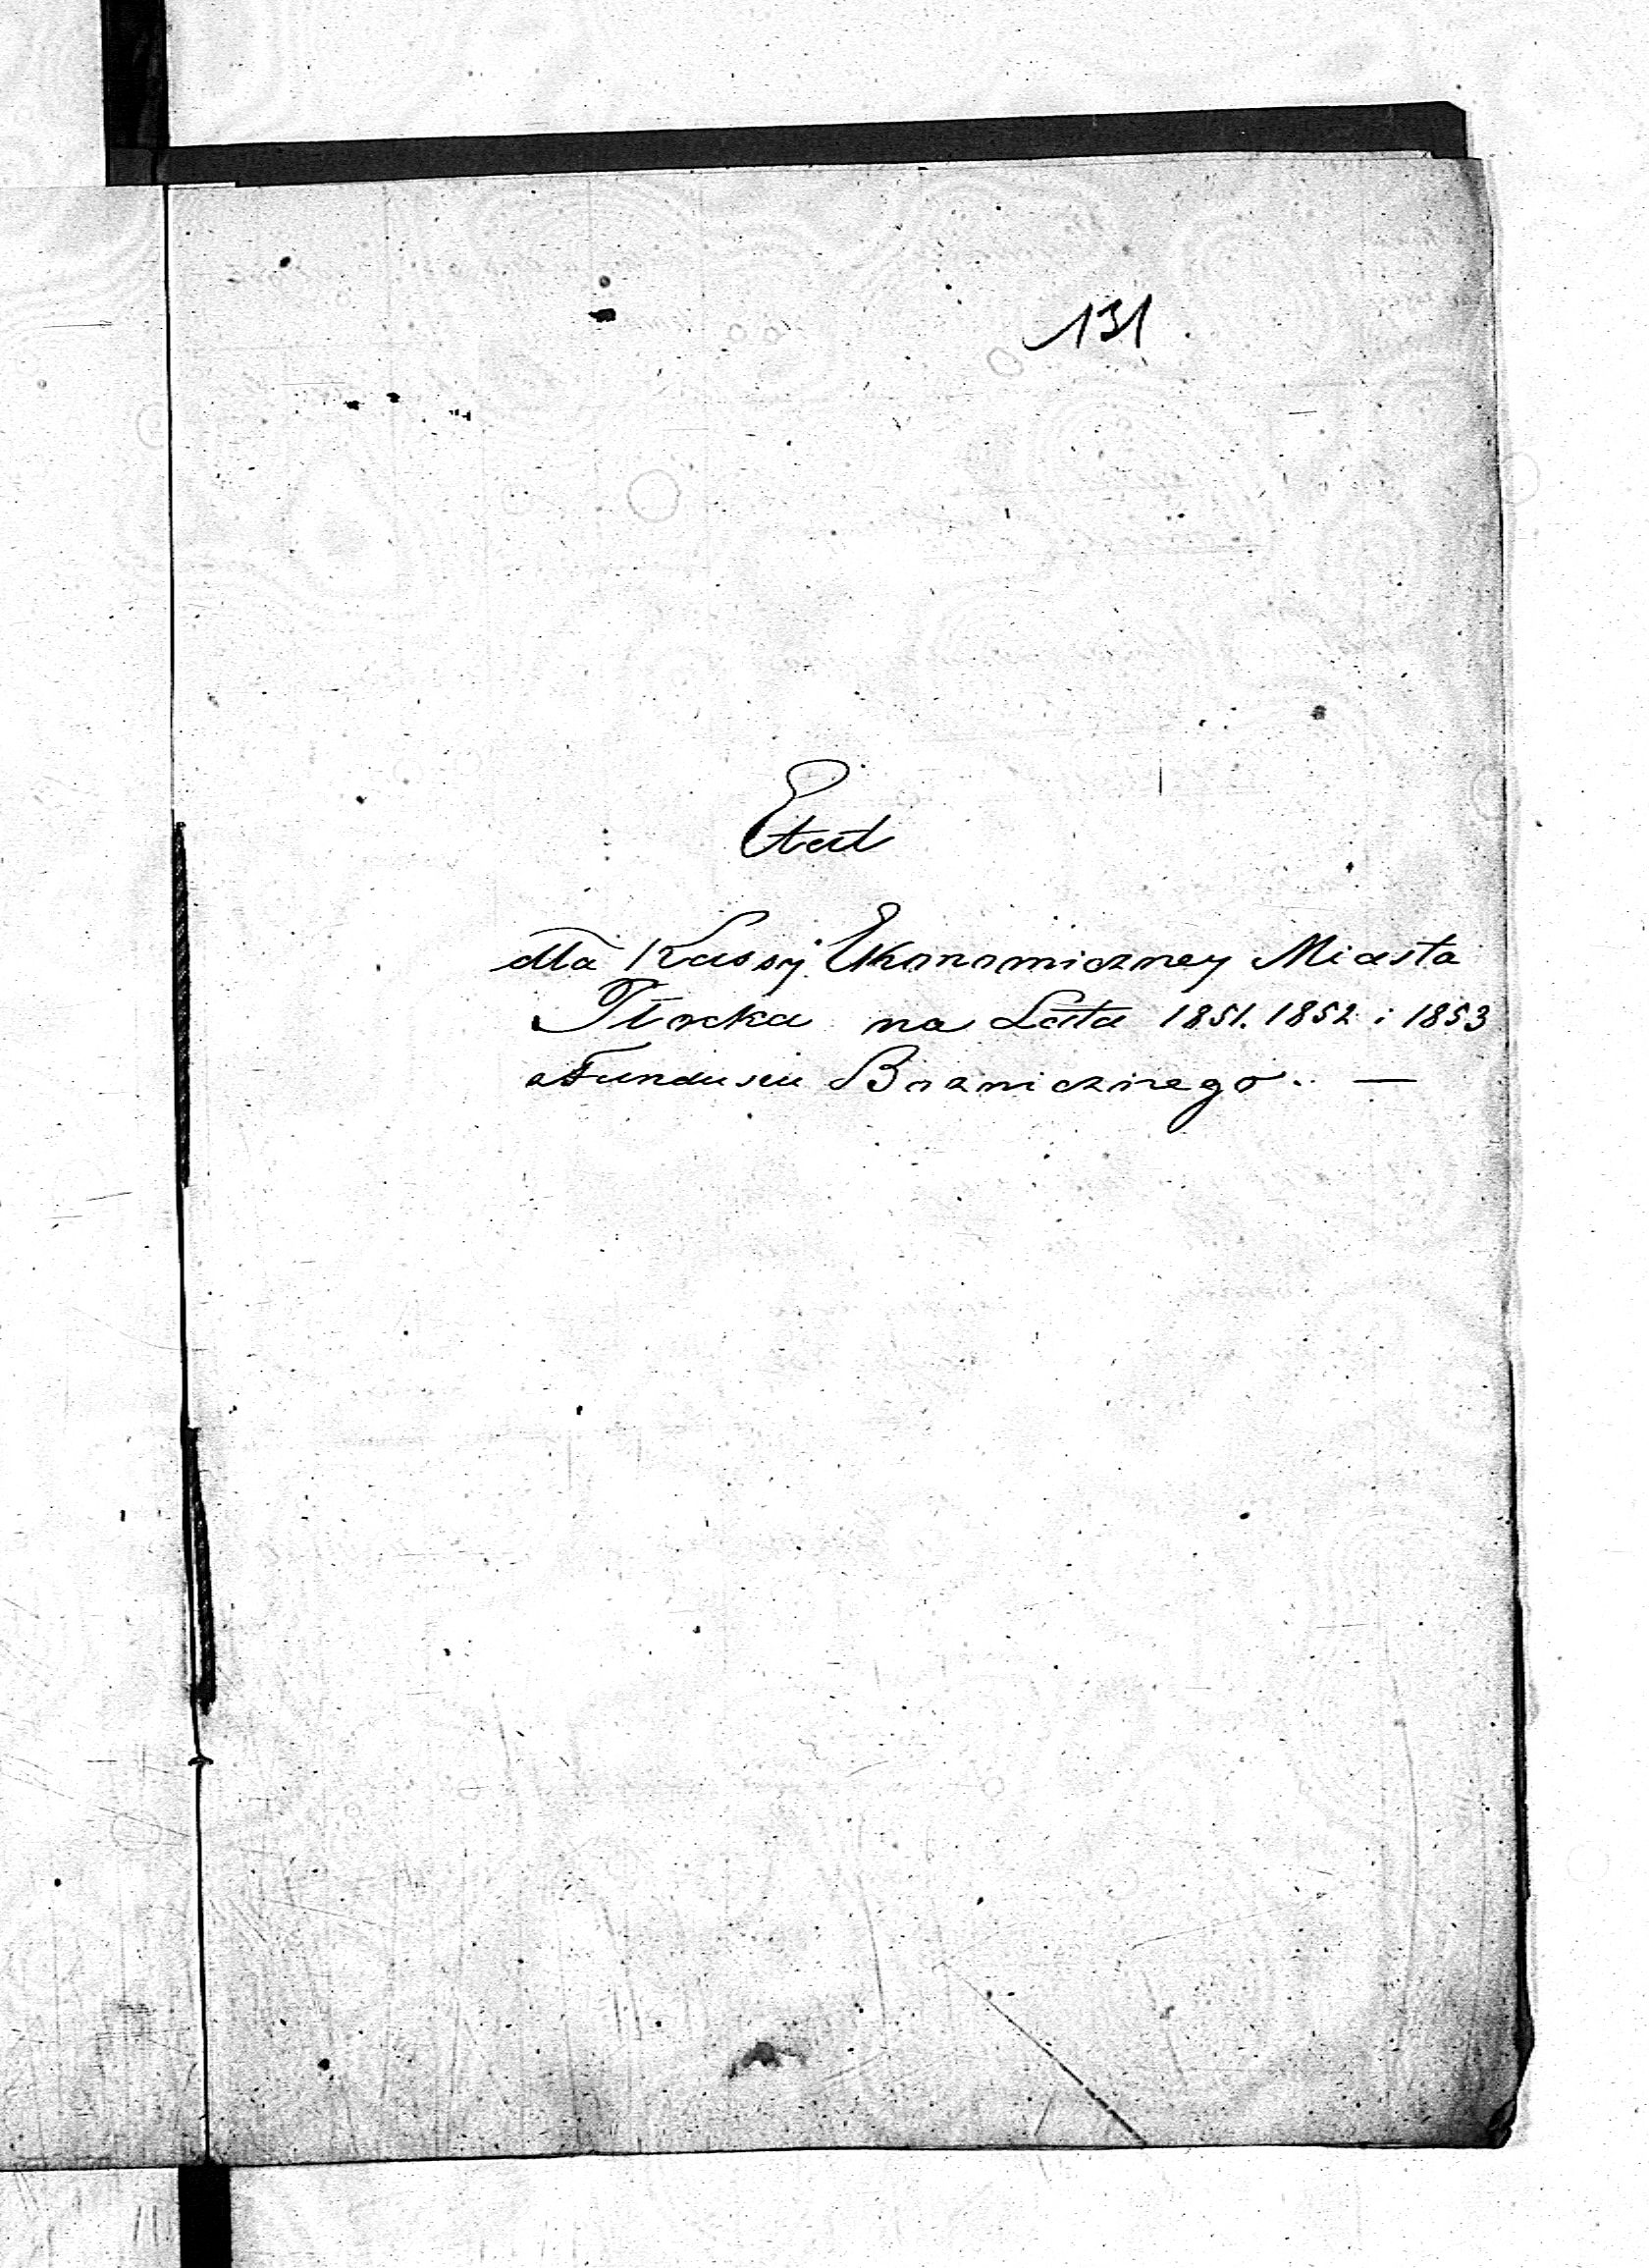 131
Etat
dla Kassy Ekonomiczney Miasta
Płocka na Lata 1851. 1852 i 1853
z Funduszu Bożnicznego. —